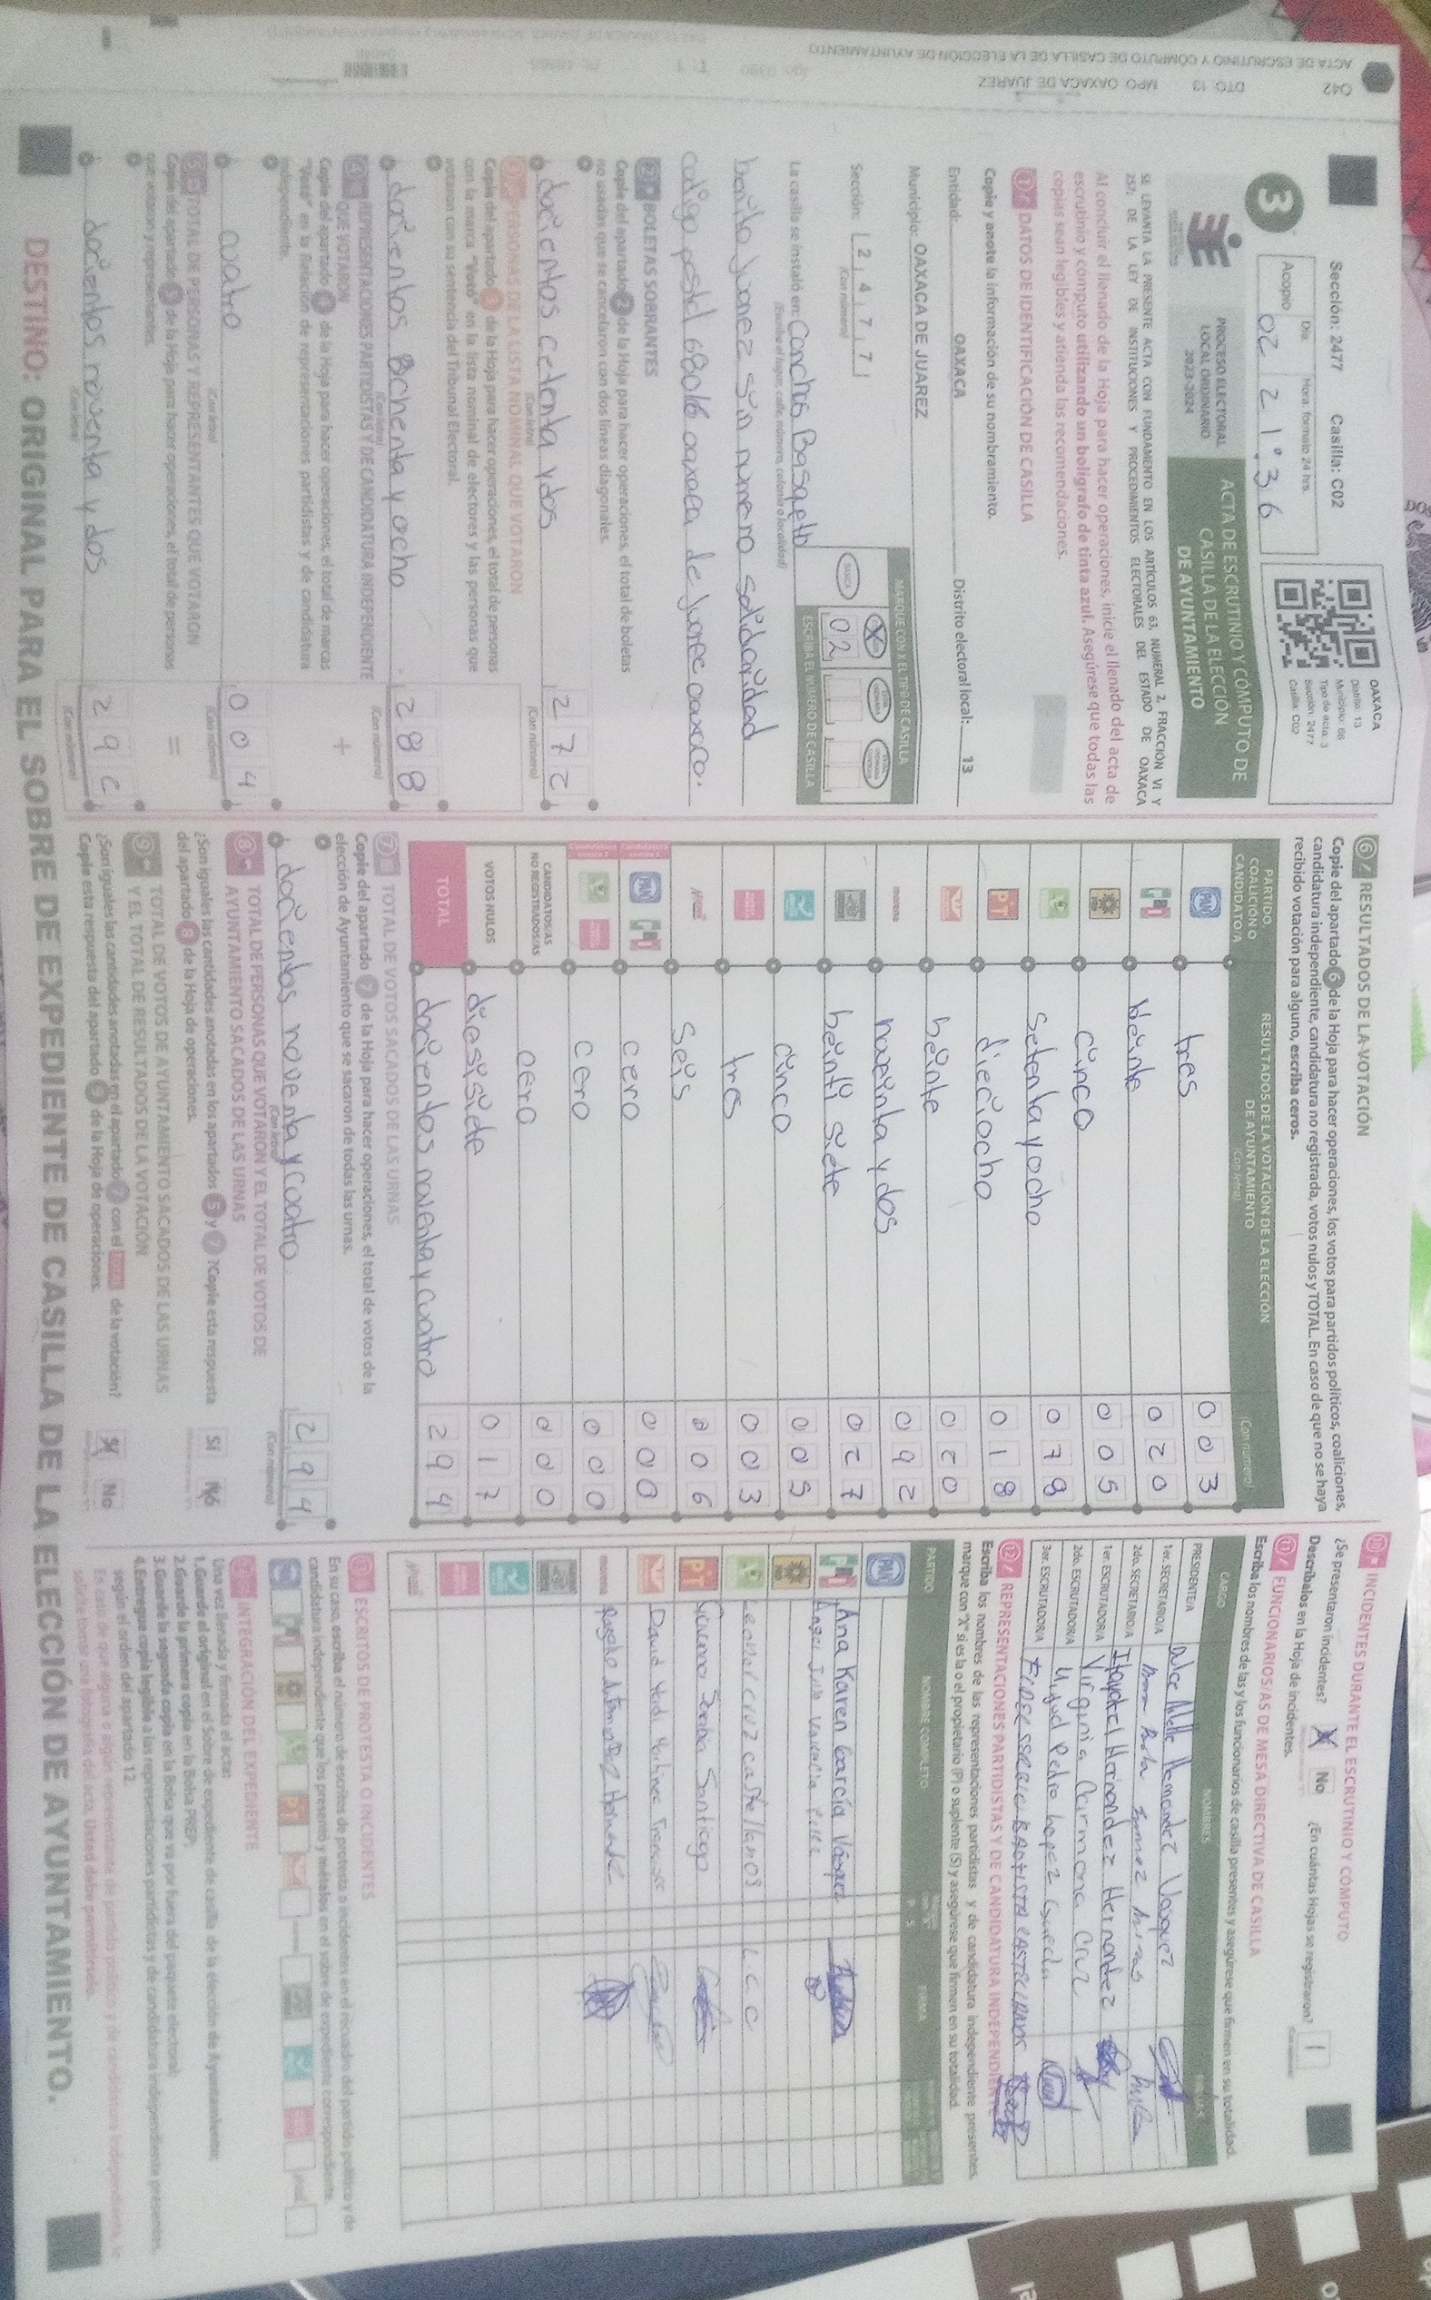 Q42 DTO. 13 MPO. OAXACA DE JUÁREZ
ACTA DE ESCRUTINIO Y CÓMPUTO DE CASILLA DE LA ELECCIÓN DE AYUNTAMIENTO
Sección: 2477 Casilla: C02
Acopio
Día
Hora: formato 24 hrs.
02 21:36
OAXACA
Distrito: 13
Tipo de acta: 3
Sección: 2477
Casilla: C02
3
PROCESO ELECTORAL
LOCAL ORDINARIO
2023-2024
ACTA DE ESCRUTINIO Y CÓMPUTO DE
CASILLA DE LA ELECCIÓN
DE AYUNTAMIENTO
SE LEVANTA LA PRESENTE ACTA CON FUNDAMENTO EN LOS ARTÍCULOS 63, NUMERAL 2, FRACCIÓN VI Y
257; DE LA LEY DE INSTITUCIONES Y PROCEDIMIENTOS ELECTORALES DEL ESTADO DE OAXACA
Al concluir el llenado de la Hoja para hacer operaciones, inicie el llenado del acta de
escrutinio y cómputo utilizando un bolígrafo de tinta azul. Asegúrese que todas las
copias sean legibles y atienda las recomendaciones.
1 DATOS DE IDENTIFICACIÓN DE CASILLA
Copie y anote la información de su nombramiento.
Entidad: OAXACA Distrito electoral local: 13
Municipio: OAXACA DE JUAREZ
Sección: 2477
(Con número)
MARQUE CON X EL TIPO DE CASILLA
02
ESCRIBA EL NÚMERO DE CASILLA
La casilla se instaló en: Canchas Basquetto
(Escriba el lugar, calle, número, colonia o localidad)
benito juarez sin numero solidaridad
codigo postal 68016 oaxaca de juarez oaxaca.
2 BOLETAS SOBRANTES
Copie del apartado 2 de la Hoja para hacer operaciones, el total de boletas
no usadas que se cancelaron con dos líneas diagonales.
docientos cetenta y dos 272
(Con letra) (Con número)
3 PERSONAS DE LA LISTA NOMINAL QUE VOTARON
Copie del apartado 3 de la Hoja para hacer operaciones, el total de personas
con la marca "Votó" en la lista nominal de electores y las personas que
votaron con su sentencia del Tribunal Electoral.
docientos 8chenta y ocho 288
(Con letra) (Con número)
4 REPRESENTACIONES PARTIDISTAS Y DE CANDIDATURA INDEPENDIENTE
QUE VOTARON
Copie del apartado 4 de la Hoja para hacer operaciones, el total de marcas
"Votó" en la Relación de representaciones partidistas y de candidatura
independiente.
cuatro 004
(Con letra) (Con número)
5 TOTAL DE PERSONAS Y REPRESENTANTES QUE VOTARON
Copie del apartado 5 de la Hoja para hacer operaciones, el total de personas
que votaron y representantes.
docientos noventa y dos 292
(Con letra) (Con número)
6 RESULTADOS DE LA VOTACIÓN
Copie del apartado 6 de la Hoja para hacer operaciones, los votos para partidos políticos, coaliciones,
candidatura independiente, candidatura no registrada, votos nulos y TOTAL. En caso de que no se haya
recibido votación para alguno, escriba ceros.
PARTIDO,
COALICIÓN O
CANDIDATO/A
RESULTADOS DE LA VOTACIÓN DE LA ELECCIÓN
DE AYUNTAMIENTO
(Con letra) (Con número)
PAN tres 003
PRI beinte 020
cinco 005
setenta y ocho 078
PT dieciocho 018
beinte 020
morena noveinta y dos 092
beinti siete 027
cinco 005
tres 003
seis 006
PAN PRI cero 000
cero 000
CANDIDATOS/AS
NO REGISTRADOS/AS cero 000
VOTOS NULOS diasisiete 017
TOTAL docientos noventa y cuatro 294
7 TOTAL DE VOTOS SACADOS DE LAS URNAS
Copie del apartado 7 de la Hoja para hacer operaciones, el total de votos de la
elección de Ayuntamiento que se sacaron de todas las urnas.
docientos noventa y cuatro 294
(Con letra) (Con número)
8 TOTAL DE PERSONAS QUE VOTARON Y EL TOTAL DE VOTOS DE
AYUNTAMIENTO SACADOS DE LAS URNAS
¿Son iguales las cantidades anotadas en los apartados 5 y 7? Copie esta respuesta
del apartado 8 de la Hoja de operaciones. Sí No
9 TOTAL DE VOTOS DE AYUNTAMIENTO SACADOS DE LAS URNAS
Y EL TOTAL DE RESULTADOS DE LA VOTACIÓN
¿Son iguales las cantidades anotadas en el apartado 7 con el TOTAL de la votación?
Copie esta respuesta del apartado 9 de la Hoja de operaciones. Sí No
10 INCIDENTES DURANTE EL ESCRUTINIO Y CÓMPUTO
¿Se presentaron incidentes? No ¿En cuántas Hojas se registraron? 1
Descríbalos en la Hoja de incidentes.
11 FUNCIONARIOS/AS DE MESA DIRECTIVA DE CASILLA
Escriba los nombres de las y los funcionarios de casilla presentes y asegúrese que firmen en su totalidad.
CARGO NOMBRES
PRESIDENTE/A Dulce Hernandez Vasquez
1er. SECRETARIO/A
2do. SECRETARIO/A Itaychel Hernandez Hernandez
1er. ESCRUTADOR/A Virginia Carmona Cruz
2do. ESCRUTADOR/A Miguel Pedro Lopez
3er. ESCRUTADOR/A
12 REPRESENTACIONES PARTIDISTAS Y DE CANDIDATURA INDEPENDIENTE
Escriba los nombres de las representaciones partidistas y de candidatura independiente presentes,
marque con "X" si es la o el propietario (P) o suplente (S) y asegúrese que firmen en su totalidad.
PARTIDO NOMBRE COMPLETO P S FIRMA
PAN
PRI Ana Karen García Vásquez
Leonel cruz castellanos L.C.C
PT Santiago
David Martinez
morena
13 ESCRITOS DE PROTESTA O INCIDENTES
En su caso, escriba el número de escritos de protesta o incidentes en el recuadro del partido político y de
candidatura independiente que los presentó y métalos en el sobre de expediente correspondiente.
INTEGRACIÓN DEL EXPEDIENTE
Una vez llenada y firmada el acta:
1.Guarde el original en el Sobre de expediente de casilla de la elección de Ayuntamiento;
2.Guarde la primera copia en la Bolsa PREP;
3.Guarde la segunda copia en la Bolsa que va por fuera del paquete electoral;
4.Entregue copia legible a las representaciones partidistas y de candidatura independiente presentes,
según el orden del apartado 12.
DESTINO: ORIGINAL PARA EL SOBRE DE EXPEDIENTE DE CASILLA DE LA ELECCIÓN DE AYUNTAMIENTO.